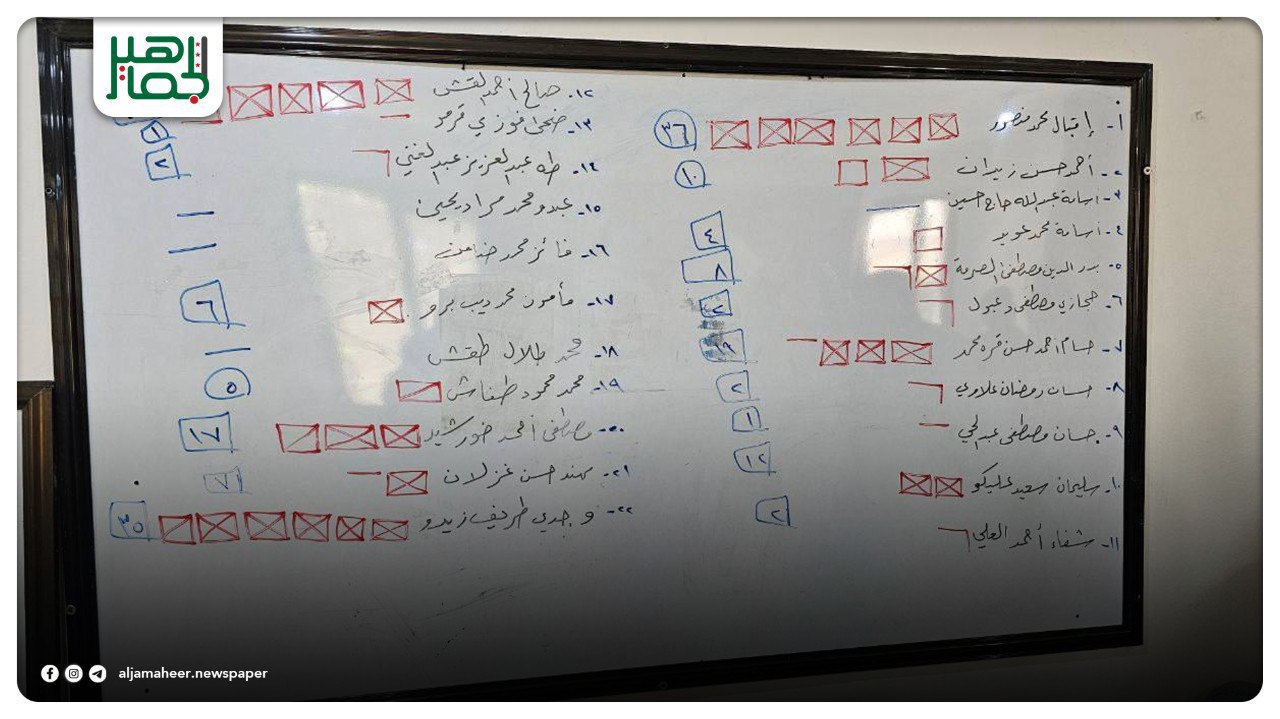 جماهير
١- إقبال محمد منصور ٣٦
٢- أحمد حسن زيدان ١٠
٣- أسامة عبد الله حاج حسين —
٤- أسامة محمد عويد ٤
٥- بدر الدين مصطفى ٨
٦- حجازي مصطفى دعبول ٢
٧- حسام أحمد حسن قره محمد ١٩
٨- حسان رمضان علاوي ٢
٩- حسان مصطفى عبد الحي ١
١٠- سليمان سعيد عليكو ١٢
١١- شفاء أحمد العلي ٢
١٢- صالح أحمد لقش
١٣- ضحى فوزي قرمو ١
١٤- طه عبد العزيز عبد الغني ٢
١٥- عبدو محمد مراد يحيى —
١٦- فائز محمد —
١٧- مأمون محمد ديب برو ٦
١٨- محمد طلال طقش —
١٩- محمد محمود طفاش ٥
٢٠- مصطفى أحمد خورشيد ١٧
٢١- مهند حسن غزلان ٧
٢٢- وجدي ظريف زيدو ٣٥
aljamaheer.newspaper